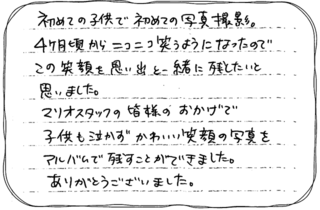 初めての子供で初めての写真撮影。
4ヶ月頃からニコニコ笑うようになったので
この笑顔を思い出と一緒に残したいと
思いました。
マリオスタックの皆様のおかげで
子供も泣かずかわいい笑顔の写真を
アルバムで残すことができました。
ありがとうございました。